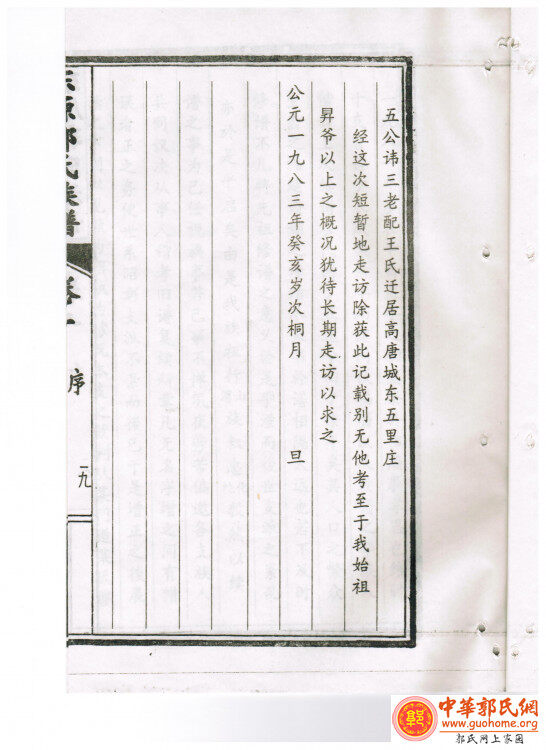 五公讳三老配王氏迁居高唐城东五里庄
经这次短暂地走访除获此记载别无他考至于我始祖
昇爷以上之概况犹待长期走访以求之
公元一九八三年癸亥岁次桐月 旦
东原郭氏族谱 卷一 序 一九
中華郭氏網
www.guohome.org
郭氏网上家园